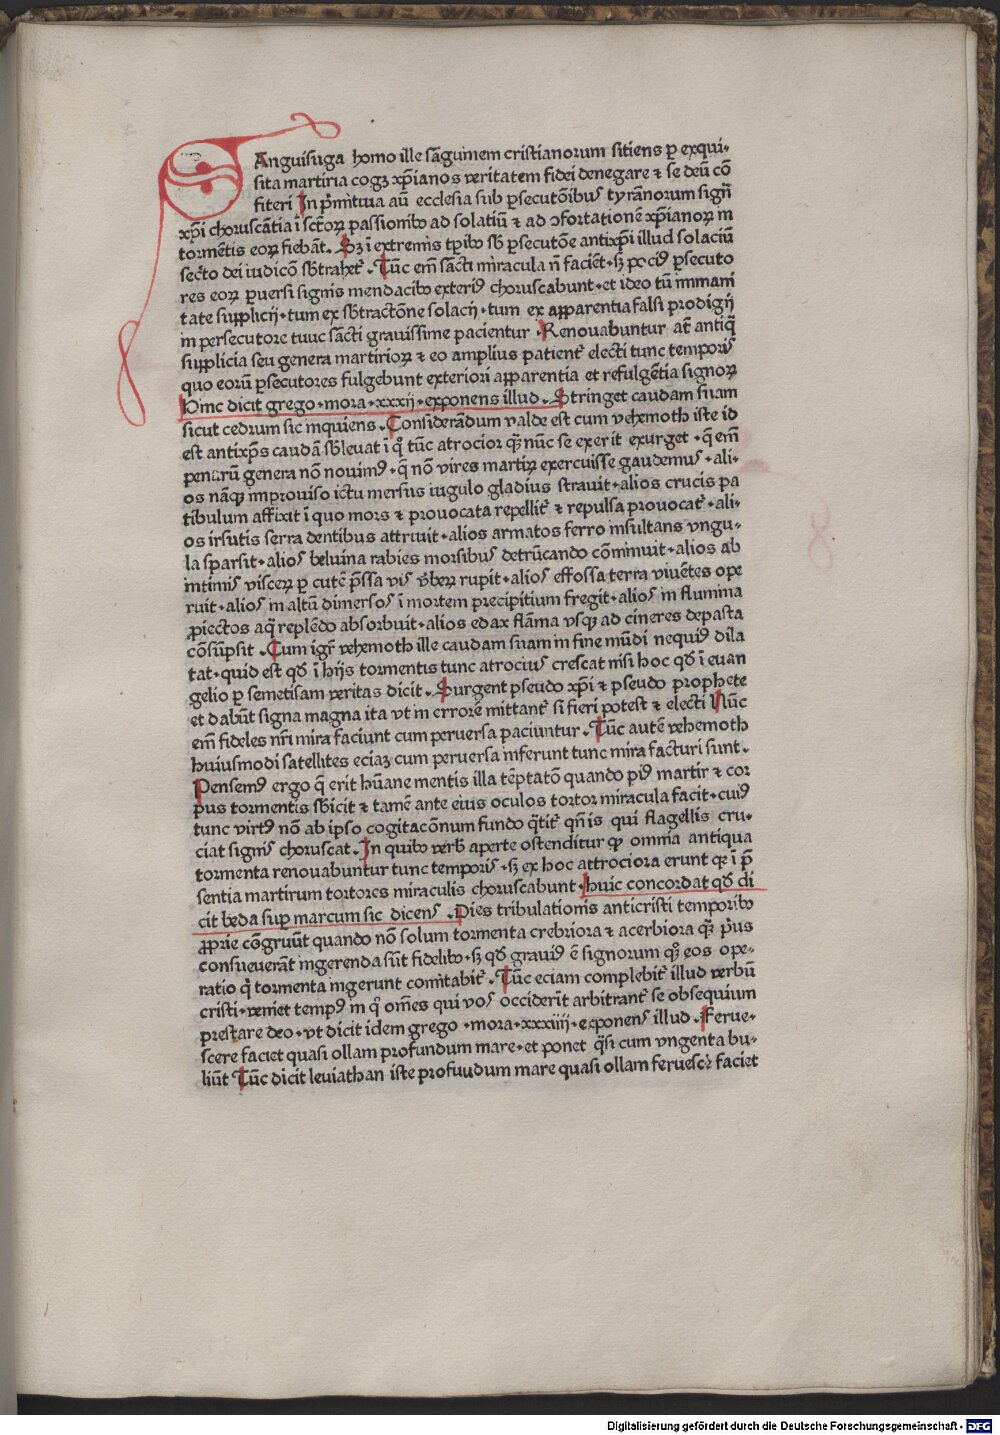 SAnguisuga homo ille sãguinem cristianorum sitiens ꝑ exqui-
sita martiria cogꝫ xp̃ianos veritatem fidei denegare ⁊ se deũ cõ
fiteri In p̃mitiua aũ ecclesia sub ꝑsecutõibus tyrãnorum signa
xp̃i choruscãtia ĩ sctõꝝ passionibꝰ ad solatiũ ⁊ ad ↄfortationẽ xp̃ianoꝝ in
tormẽtis eoꝝ fiebãt. Sꝫ ĩ extremis tp̃ibꝰ sb̃ ꝑsecutõe antixp̃i illud solaciũ
secr̃to dei iudicõ sb̃trahet᷑. Tũc em̃ sãcti miracula nõ faciẽt. sꝫ pociꝰ ꝑsecuto
res eoꝝ ꝑuersi signis mendacibꝰ exteriꝰ choruscabunt. et ideo tũ inmani
tate supplicij. tum ex sb̃tractõne solacij. tum ex apparentia falsi prodigij
in persecutore tuuc sãcti grauissime pacientur. Renouabuntur aũt antiq̃
supplicia seu genera martirioꝝ ⁊ eo amplius patient᷑ electi tunc temporis
quo eorũ ꝑsecutores fulgebunt exteriori apparentia et refulgẽtia signoꝝ
Hinc dicit grego. mora. xxxij. exponens illud. Stringet caudam suam
sicut cedrum sic inquiens. Considerãdum valde est cum vehemoth iste id
est antixp̃s caudã sb̃leuat ĩ qͦ tũc atrocior qꝫ̃ nũc se exerit exurget. q̃ em̃
penarũ genera nõ nouimꝰ. q̃ nõ vires martiꝝ exercuisse gaudemus. ali-
os nãqꝫ improuiso ictu mersus iugulo gladius strauit. alios crucis pa
tibulum affixit ĩ quo mors ⁊ prouocata repellit᷑ ⁊ repulsa prouocat᷑. ali-
os irsutis serra dentibus attriuit. alios armatos ferro insultans vngu-
la sparsit. alios beluina rabies morsibus detrũcando cõminuit. alios ab
intimis visceꝝ ꝑ cutẽ p̃ssa vis v̓beꝝ rupit. alios effossa terra viuẽtes ope
ruit. alios in altũ dimersos ĩ mortem precipitium fregit. alios in flumina
ꝓiectos aq̃ replẽdo absorbuit. alios edax flãma vsqꝫ ad cineres depasta
cõsũpsit. Cum igr̃ vehemoth ille caudam suam in fine mũdi nequiꝰ dila
tat. quid est qd̃ ĩ hijs tormentis tunc atrocius crescat nisi hoc qd̃ ĩ euan
gelio ꝑ semetisam veritas dicit. Surgent pseudo xp̃i ⁊ pseudo prophete
et dabũt signa magna ita vt in errorẽ mittant᷑ si fieri potest ⁊ electi Nũc
em̃ fideles nr̃i mira faciunt cum peruersa paciuntur. Tũc autẽ vehemoth
huiusmodi satellites eciaꝫ cum peruersa inferunt tunc mira facturi sunt.
Pensemꝰ ergo q̃ erit hũane mentis illa tẽptatõ quando piꝰ martir ⁊ cor
pus tormentis sb̃icit ⁊ tamẽ ante eius oculos tortor miracula facit. cuiꝰ
tunc virtꝰ nõ ab ipso cogitacõnum fundo q̃tit᷑ qñ is qui flagellis cru-
ciat signis choruscat. In quibꝰ verb̃ aperte ostenditur ꝙ omnia antiqua
tormenta renouabuntur tunc temporis. sꝫ ex hoc attrociora erunt qꝛ ĩ p̃
sentia martirum tortores miraculis choruscabunt. huic concordat qd̃ di
cit beda suꝑ marcum sic dicens. Dies tribulationis anticristi temporibꝰ
ꝓprie cõgruũt quando nõ solum tormenta crebriora ⁊ acerbiora qꝫ̃ pͥus
consueuerãt ingerenda sũt fidelibꝰ. sꝫ qd̃ grauiꝰ ẽ signorum qͦꝫ eos ope-
ratio q̃ tormenta ingerunt comitabit᷑. Tũc eciam complebit᷑ illud verbũ
cristi. veniet tempꝰ in qͦ oẽs qui vos occiderĩt arbitrant᷑ se obsequium
prestare deo. vt dicit idem grego. mora. xxxiiij. exponens illud. Ferue-
scere faciet quasi ollam profundum mare. et ponet q̃si cum vngenta bu-
liũt Tũc dicit leuiathan iste profuudum mare quasi ollam feruescẽ faciet
Digitalisierung gefördert durch die Deutsche Forschungsgemeinschaft - DFG